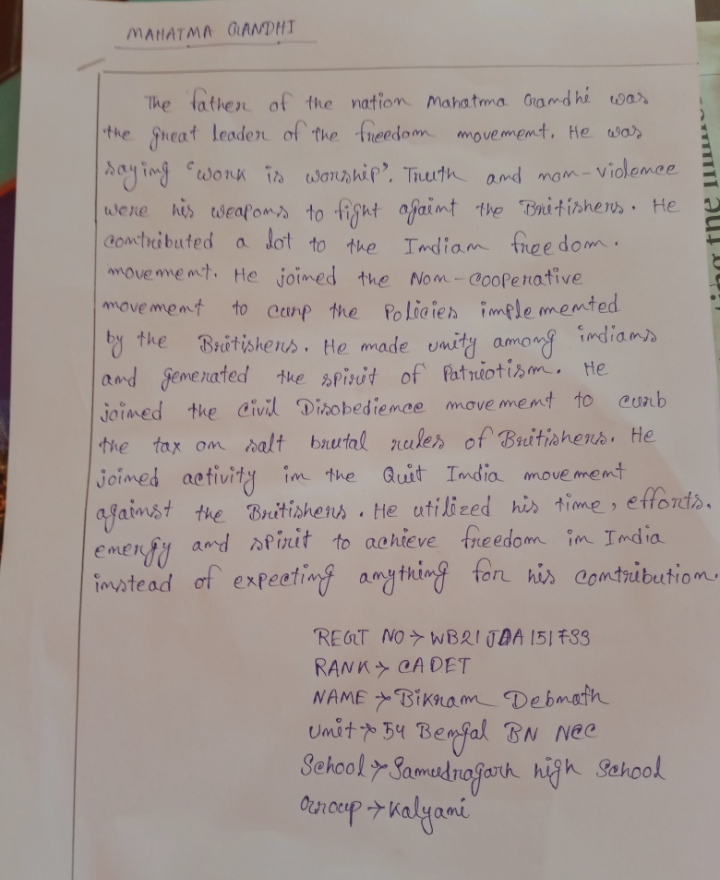 MAHATMA GANDHI
The father of the nation Mahatma Gandhi was
the great leader of the freedom movement. He was
saying "work is worship". Truth and non-violence
were his weapons to fight againt the Britishers. He
contributed a lot to the Indian freedom.
movement. He joined the Non-Cooperative
movement to curp the Policies implemented
by the Britishers. He made unity among indians
and generated the spirit of Patriotism. He
joined the Civil Disobedience movement to curb
the tax on salt brutal rules of Britishers. He
joined activity in the Quit India movement
against the Britishers. He utilized his time, efforts.
energy and spirit to achieve freedom in India
instead of expecting anything for his contribution.
REGT NO → WB21JDA151733
RANK → CADET
NAME → Bikram Debnath
Unit → 54 Bengal BN NCC
School → Samudragarh high School
Group → Kalyani